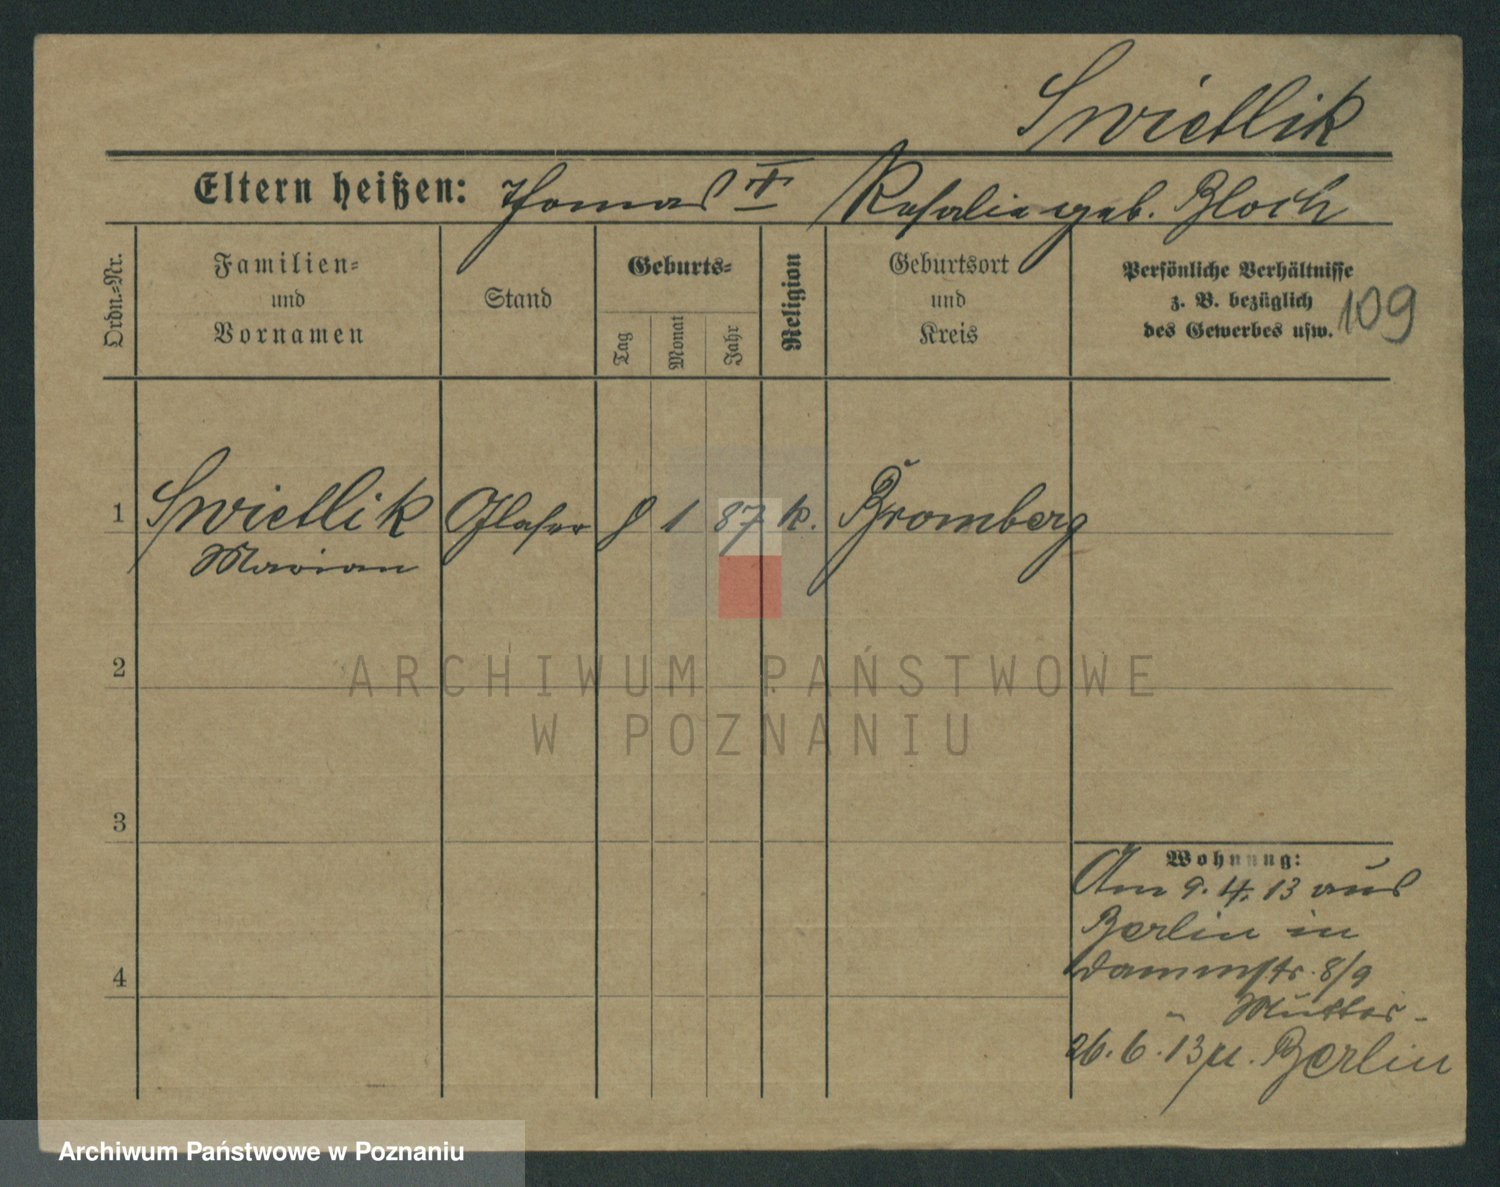 Swietlik
Eltern heißen: Thomas † Rosalie geb. Bloch
Ordn.-Nr.
Familien-
und
Vornamen
Stand
Geburts-
Tag
Monat
Jahr
Religion
Geburtsort
und
Kreis
Persönliche Verhältnisse
z. B. bezüglich
des Gewerbes usw.
109
1 Swietlik Glaser 8 1 87 k. Bromberg
Marian
2
3
4
Wohnung:
Am 9. 4. 13 aus
Berlin in
Dammstr. 8/9
- Mutter -
26. 6. 13 n. Berlin
ARCHIWUM PAŃSTWOWE
W POZNANIU
Archiwum Państwowe w Poznaniu